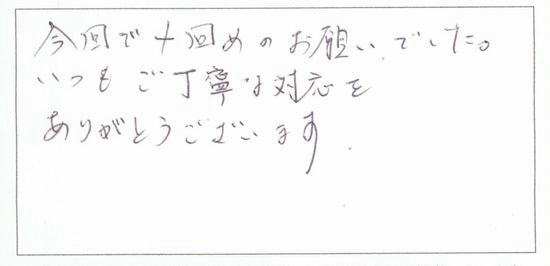 今回で十回めのお願いでした。
いつもご丁寧な対応を
ありがとうございます